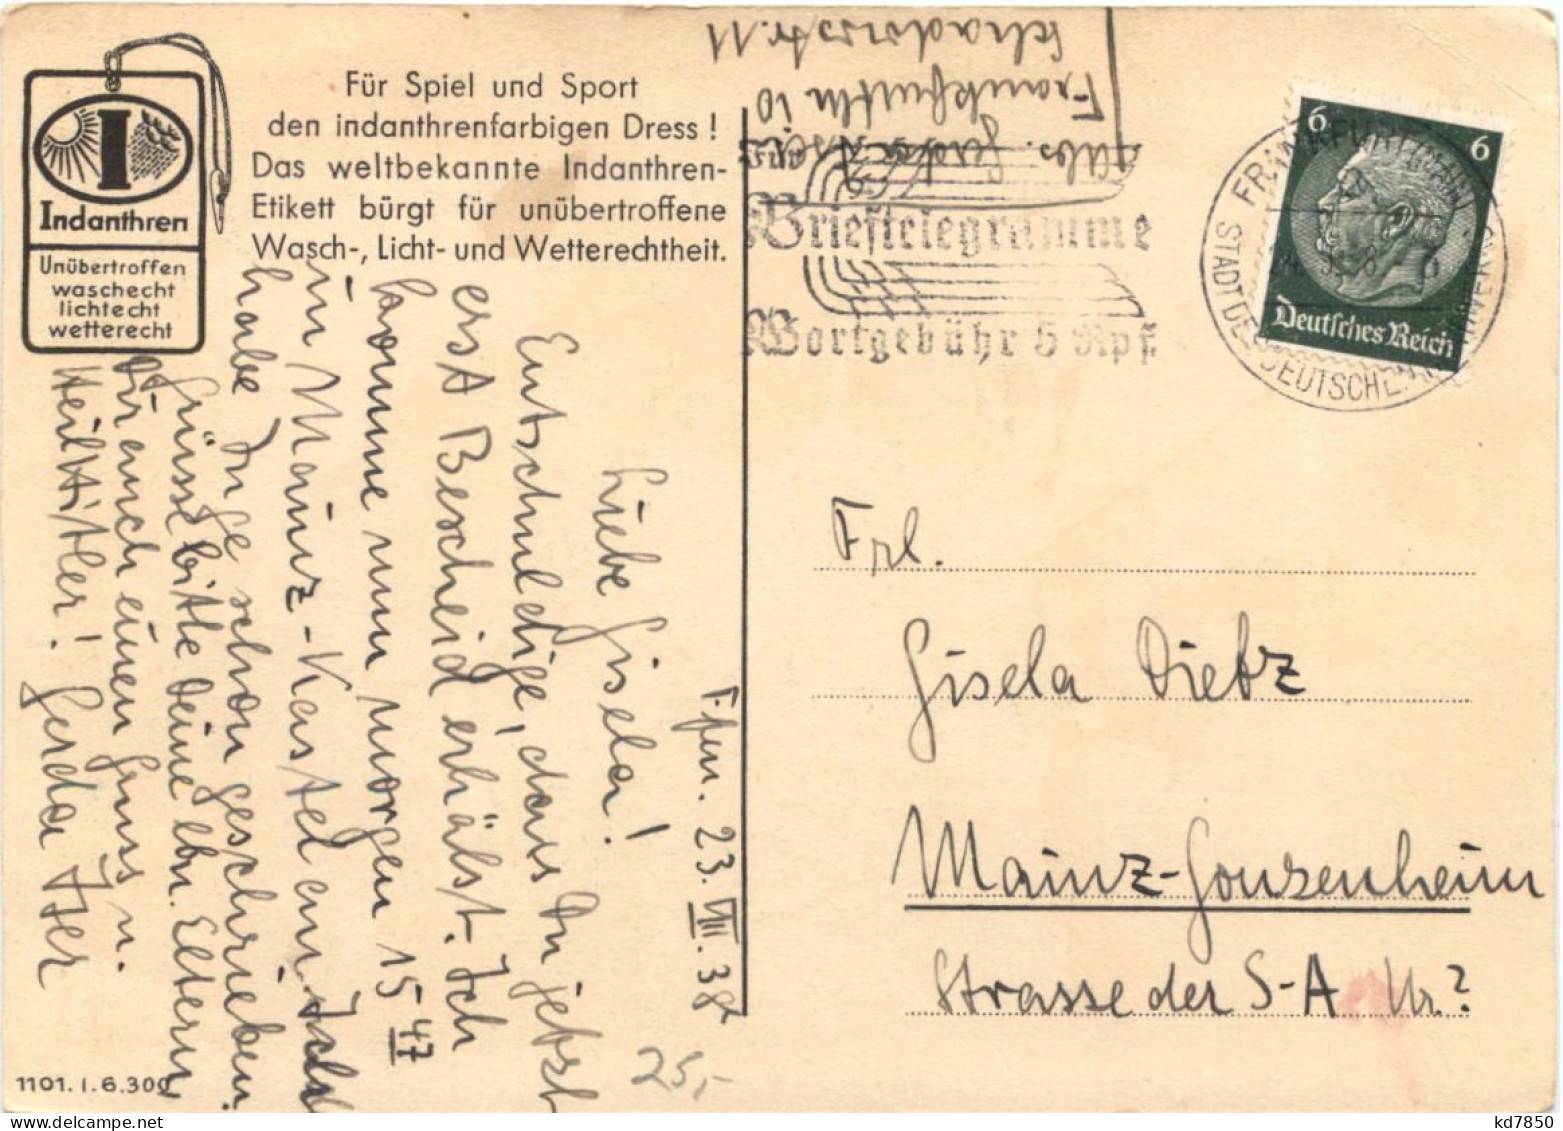 Für Spiel und Sport
den indanthrenfarbigen Dress !
Das weltbekannte Indanthren-
Etikett bürgt für unübertroffene
Wasch-, Licht- und Wetterechtheit.
I
Indanthren
Unübertroffen
waschecht
lichtecht
wetterecht
Abs. Gerda Iser
Frankfurt/M 10
Schadowstr. 11
Brieftelegramme
Wortgebühr 5 Rpf.
FRANKFURT (MAIN)
STADT DES DEUTSCHEN HANDWERKS
6 6
Deutsches Reich
Ffm. 23. VIII. 38
Liebe Gisela!
Entschuldige, dass Du jetzt
erst Bescheid erhälst. Ich
komme nun morgen 15 47
in Mainz-Kastel an. Ich
habe Inge schon geschrieben.
Grüsse bitte Deine lbn. Eltern
Dir auch einen Gruss u.
Heil Hitler! Gerda Iser
Frl.
Gisela Dietz
Mainz-Gonsenheim
Strasse der S-A Nr.?
25,-
1101. I. 6. 300
kd7850